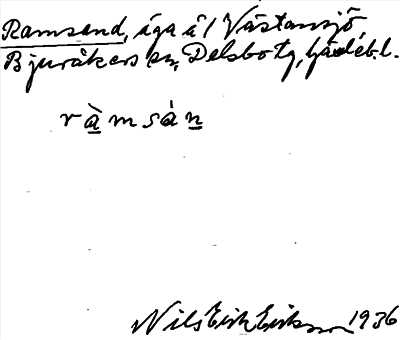 Ramsand, äga å / Västansjö,
Bjuråkers sn, Delsbo tg, Gävleb.l.
ràmsán
Nils Erik Eriksson 1936